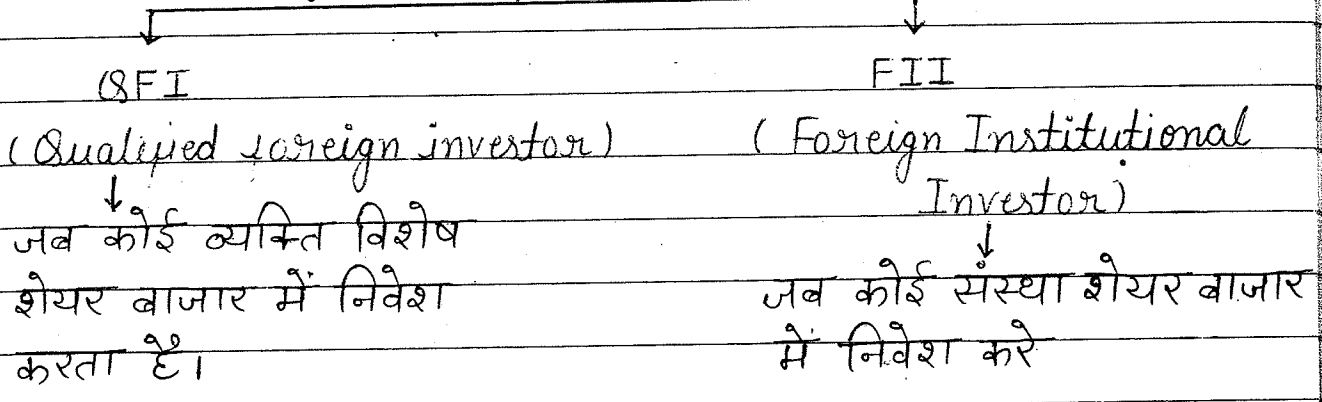 QFI
(Qualified foreign investor)
जब कोई व्यक्ति विशेष
शेयर बाजार में निवेश
करता है।
FII
(Foreign Institutional
Investor)
जब कोई संस्था शेयर बाजार
में निवेश करे